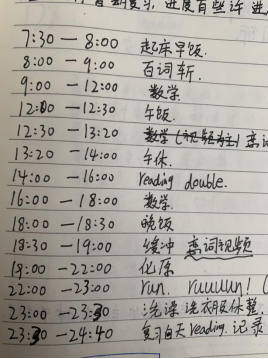 复习,进度有些许进
7:30 — 8:00 起床早饭.
8:00 — 9:00 百词斩.
9:00 — 12:00 数学
12:00 — 12:30 午饭.
12:30 — 13:20 数学(视频为主)
13:20 — 14:00 午休.
14:00 — 16:00 reading double.
16:00 — 18:00 数学.
18:00 — 18:30 晚饭
18:30 — 19:00 缓冲 恋词视频
19:00 — 22:00 化原
22:00 — 23:00 run. ruuuun! (
23:00 — 23:30 洗澡洗衣服休整.
23:30 — 24:40 复习白天reading.记录